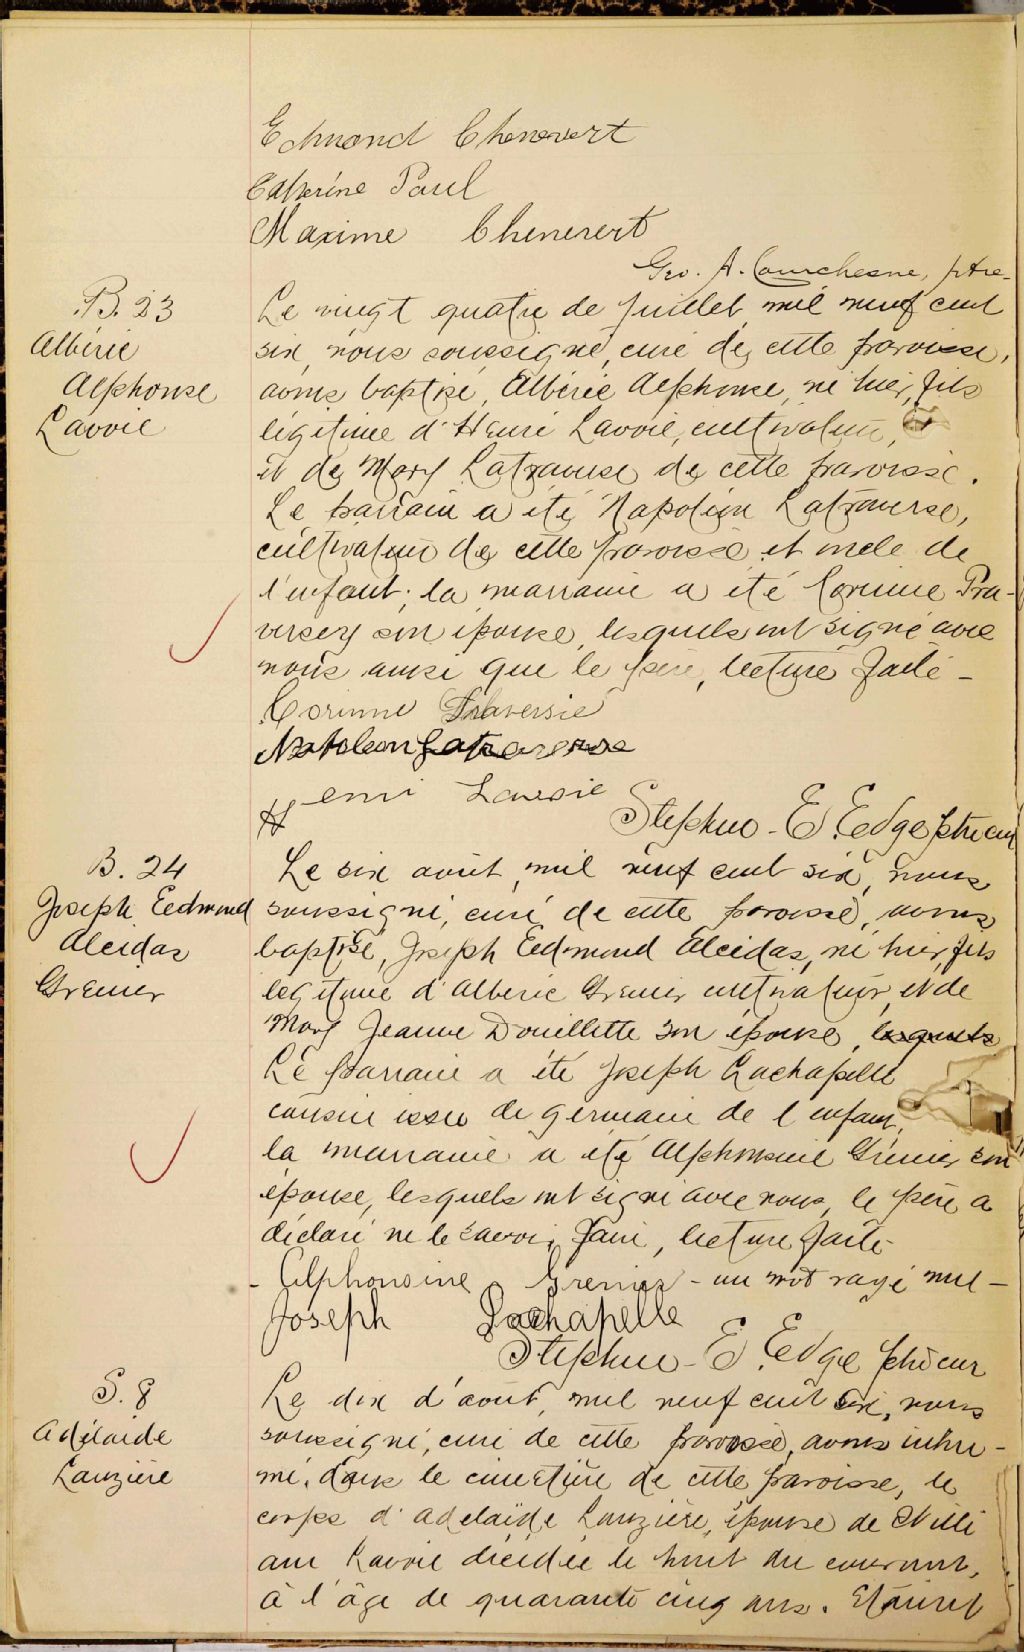 Edmond Chenevert
Catherine Paul
Maxime Chenevert
Geo. A. Courchesne, ptre
B. 23
Albéric
Alphonse
Lavoie
Le vingt quatre de Juillet, mil neuf cent
six, nous soussigné, curé de cette paroisse,
avons baptisé, Albéric Alphonse, né hier, fils
légitime d'Henri Lavoie, cultivateur,
et de Mary Latraverse de cette paroisse.
Le parrain a été Napoléon Latraverse,
cultivateur de cette paroisse et oncle de
l'enfant; la marraine a été Corinne Tra-
versey son épouse, lesquels ont signé avec
nous ainsi que le père, lecture faite -
Corinne Traversie
Napoleon Latraverse
Henri Lavoie
Stephen - E. Edge ptre cur
B. 24
Joseph Eedmond
Alcidas
Grenier
Le six août, mil neuf cent six, nous
soussigné, curé de cette paroisse, avons
baptisé, Joseph Eedmond Alcidas, né hier, fils
légitime d'Alberic Grenier cultivateur, et de
Mary Jeanne Douillette son épouse, lesquels
Le parrain a été Joseph Lachapelle
cousin issu de germain de l'enfant,
la marraine a été Alphonsine Grenier son
épouse, lesquels ont signé avec nous, le père a
déclaré ne le savoir faire, lecture faite
- Alphonsine Grenier - un mot rayé nul -
Joseph Lachapelle
Stephen - E. Edge ptre cur
S. 8
Adélaide
Lauzière
Le dix d'août, mil neuf cent six, nous
soussigné, curé de cette paroisse, avons inhu-
mé, dans le cimetière de cette paroisse, le
corps d'Adelaïde Lauzière, épouse de Willi
am Lavoie décédée le huit du courant,
à l'âge de quarante cinq ans. Etaient